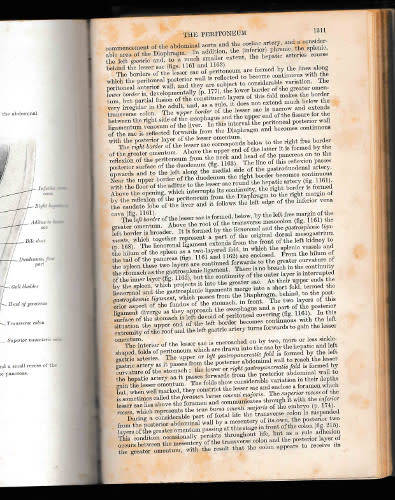 THE PERITONEUM 1311
commencement of the abdominal aorta and the coeliac artery, and a consider-
able area of the Diaphragm. In addition, the inferior phrenic, the splenic,
the left gastric and, to a much smaller extent, the hepatic arteries course
behind the lesser sac (figs. 1161 and 1163).
The borders of the lesser sac of peritoneum, are formed by the lines along
which the peritoneal posterior wall is reflected to become continuous with the
peritoneal anterior wall, and they are subject to considerable variation. The
lower border is, developmentally (p. 177), the lower border of the greater omen-
tum, but partial fusion of the constituent layers of this fold makes the border
very irregular in the adult, and, as a rule, it does not extend much below the
transverse colon. The upper border of the lesser sac is narrow and extends
between the right side of the oesophagus and the upper end of the fissure for the
ligamentum venosum of the liver. In this interval the peritoneal posterior wall
of the sac is reflected forwards from the Diaphragm and becomes continuous
with the posterior layer of the lesser omentum.
The right border of the lesser sac corresponds below to the right free border
of the greater omentum. Above the upper end of the latter it is formed by the
reflexion of the peritoneum from the neck and head of the pancreas on to the
posterior surface of the duodenum (fig. 1163). The line of this reflexion passes
upwards and to the left along the medial side of the gastroduodenal artery.
Near the upper border of the duodenum the right border becomes continuous
with the floor of the aditus to the lesser sac round the hepatic artery (fig. 1161).
Above the opening, which interrupts its continuity, the right border is formed
by the reflexion of the peritoneum from the Diaphragm to the right margin of
the caudate lobe of the liver and it follows the left edge of the inferior vena
cava (fig. 1161).
The left border of the lesser sac is formed, below, by the left free margin of the
greater omentum. Above the root of the transverse mesocolon (fig. 1161) the
left border is broader. It is formed by the lienorenal and the gastrosplenic liga-
ments, which together represent a part of the original dorsal mesogastrium
(p. 168). The lienorenal ligament extends from the front of the left kidney to
the hilum of the spleen as a two-layered fold, in which the splenic vessels and
the tail of the pancreas (figs. 1161 and 1162) are enclosed. From the hilum of
the spleen these two layers are continued forwards to the greater curvature of
the stomach as the gastrosplenic ligament. There is no breach in the continuity
of the inner layer (fig. 1162), but the continuity of the outer layer is interrupted
by the spleen, which projects into the greater sac. As their upper ends the
lienorenal and the gastrosplenic ligaments merge into a short fold, termed the
gastrophrenic ligament, which passes from the Diaphragm, behind, to the post-
erior aspect of the fundus of the stomach, in front. The two layers of this
ligament diverge as they approach the oesophagus and a part of the posterior
surface of the stomach is left devoid of peritoneal covering (fig. 1161). In this
situation the upper end of the left border becomes continuous with the left
extremity of the roof and the left gastric artery turns forwards to gain the lesser
omentum.
The interior of the lesser sac is encroached on by two, more or less sickle-
shaped, folds of peritoneum which are drawn into the sac by the hepatic and left
gastric arteries. The upper or left gastropancreatic fold is formed by the left
gastric artery as it passes from the posterior abdominal wall to reach the lesser
curvature of the stomach; the lower or right gastropancreatic fold is formed by
the hepatic artery as it passes forwards from the posterior abdominal wall to
gain the lesser omentum. The folds show considerable variation in their depths
but, when well marked, they constrict the lesser sac and enclose a foramen which
is sometimes called the foramen bursae omenti majoris. The superior recess of the
lesser sac lies above the foramen and communicates through it with the inferior
recess, which represents the true bursa omenti majoris of the embryo (p. 174).
During a considerable part of foetal life the transverse colon is suspended
from the posterior abdominal wall by a mesentery of its own, the posterior two
layers of the greater omentum passing at this stage in front of the colon (fig. 215).
This condition occasionally persists throughout life, but as a rule adhesion
occurs between the mesentery of the transverse colon and the posterior layer of
the greater omentum, with the result that the colon appears to receive its
the abdominal
Bile duct
Gall bladder
Head of pancreas
Transverse colon